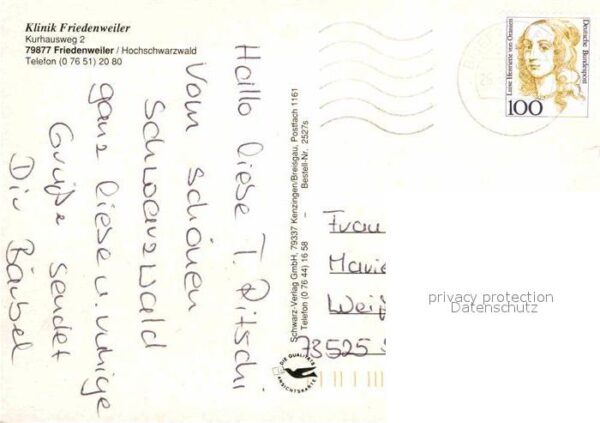 Klinik Friedenweiler
Kurhausweg 2
79877 Friedenweiler / Hochschwarzwald
Telefon (0 76 51) 20 80
Hallo liebe T. Ritschi
vom schönen
Schwarzwald
ganz liebe u. ruhige
Grüße sendet
Dir Bärbel
Schwarz-Verlag GmbH, 79337 Kenzingen/Breisgau, Postfach 1161
Telefon (0 76 44) 16 58 – Bestell-Nr. 2527s
DIE QUALITÄTS
ANSICHTSKARTE
Luise Henriette von Oranien
Deutsche Bundespost
100
Frau
Marie
Weiß
73525 S
privacy protection
Datenschutz